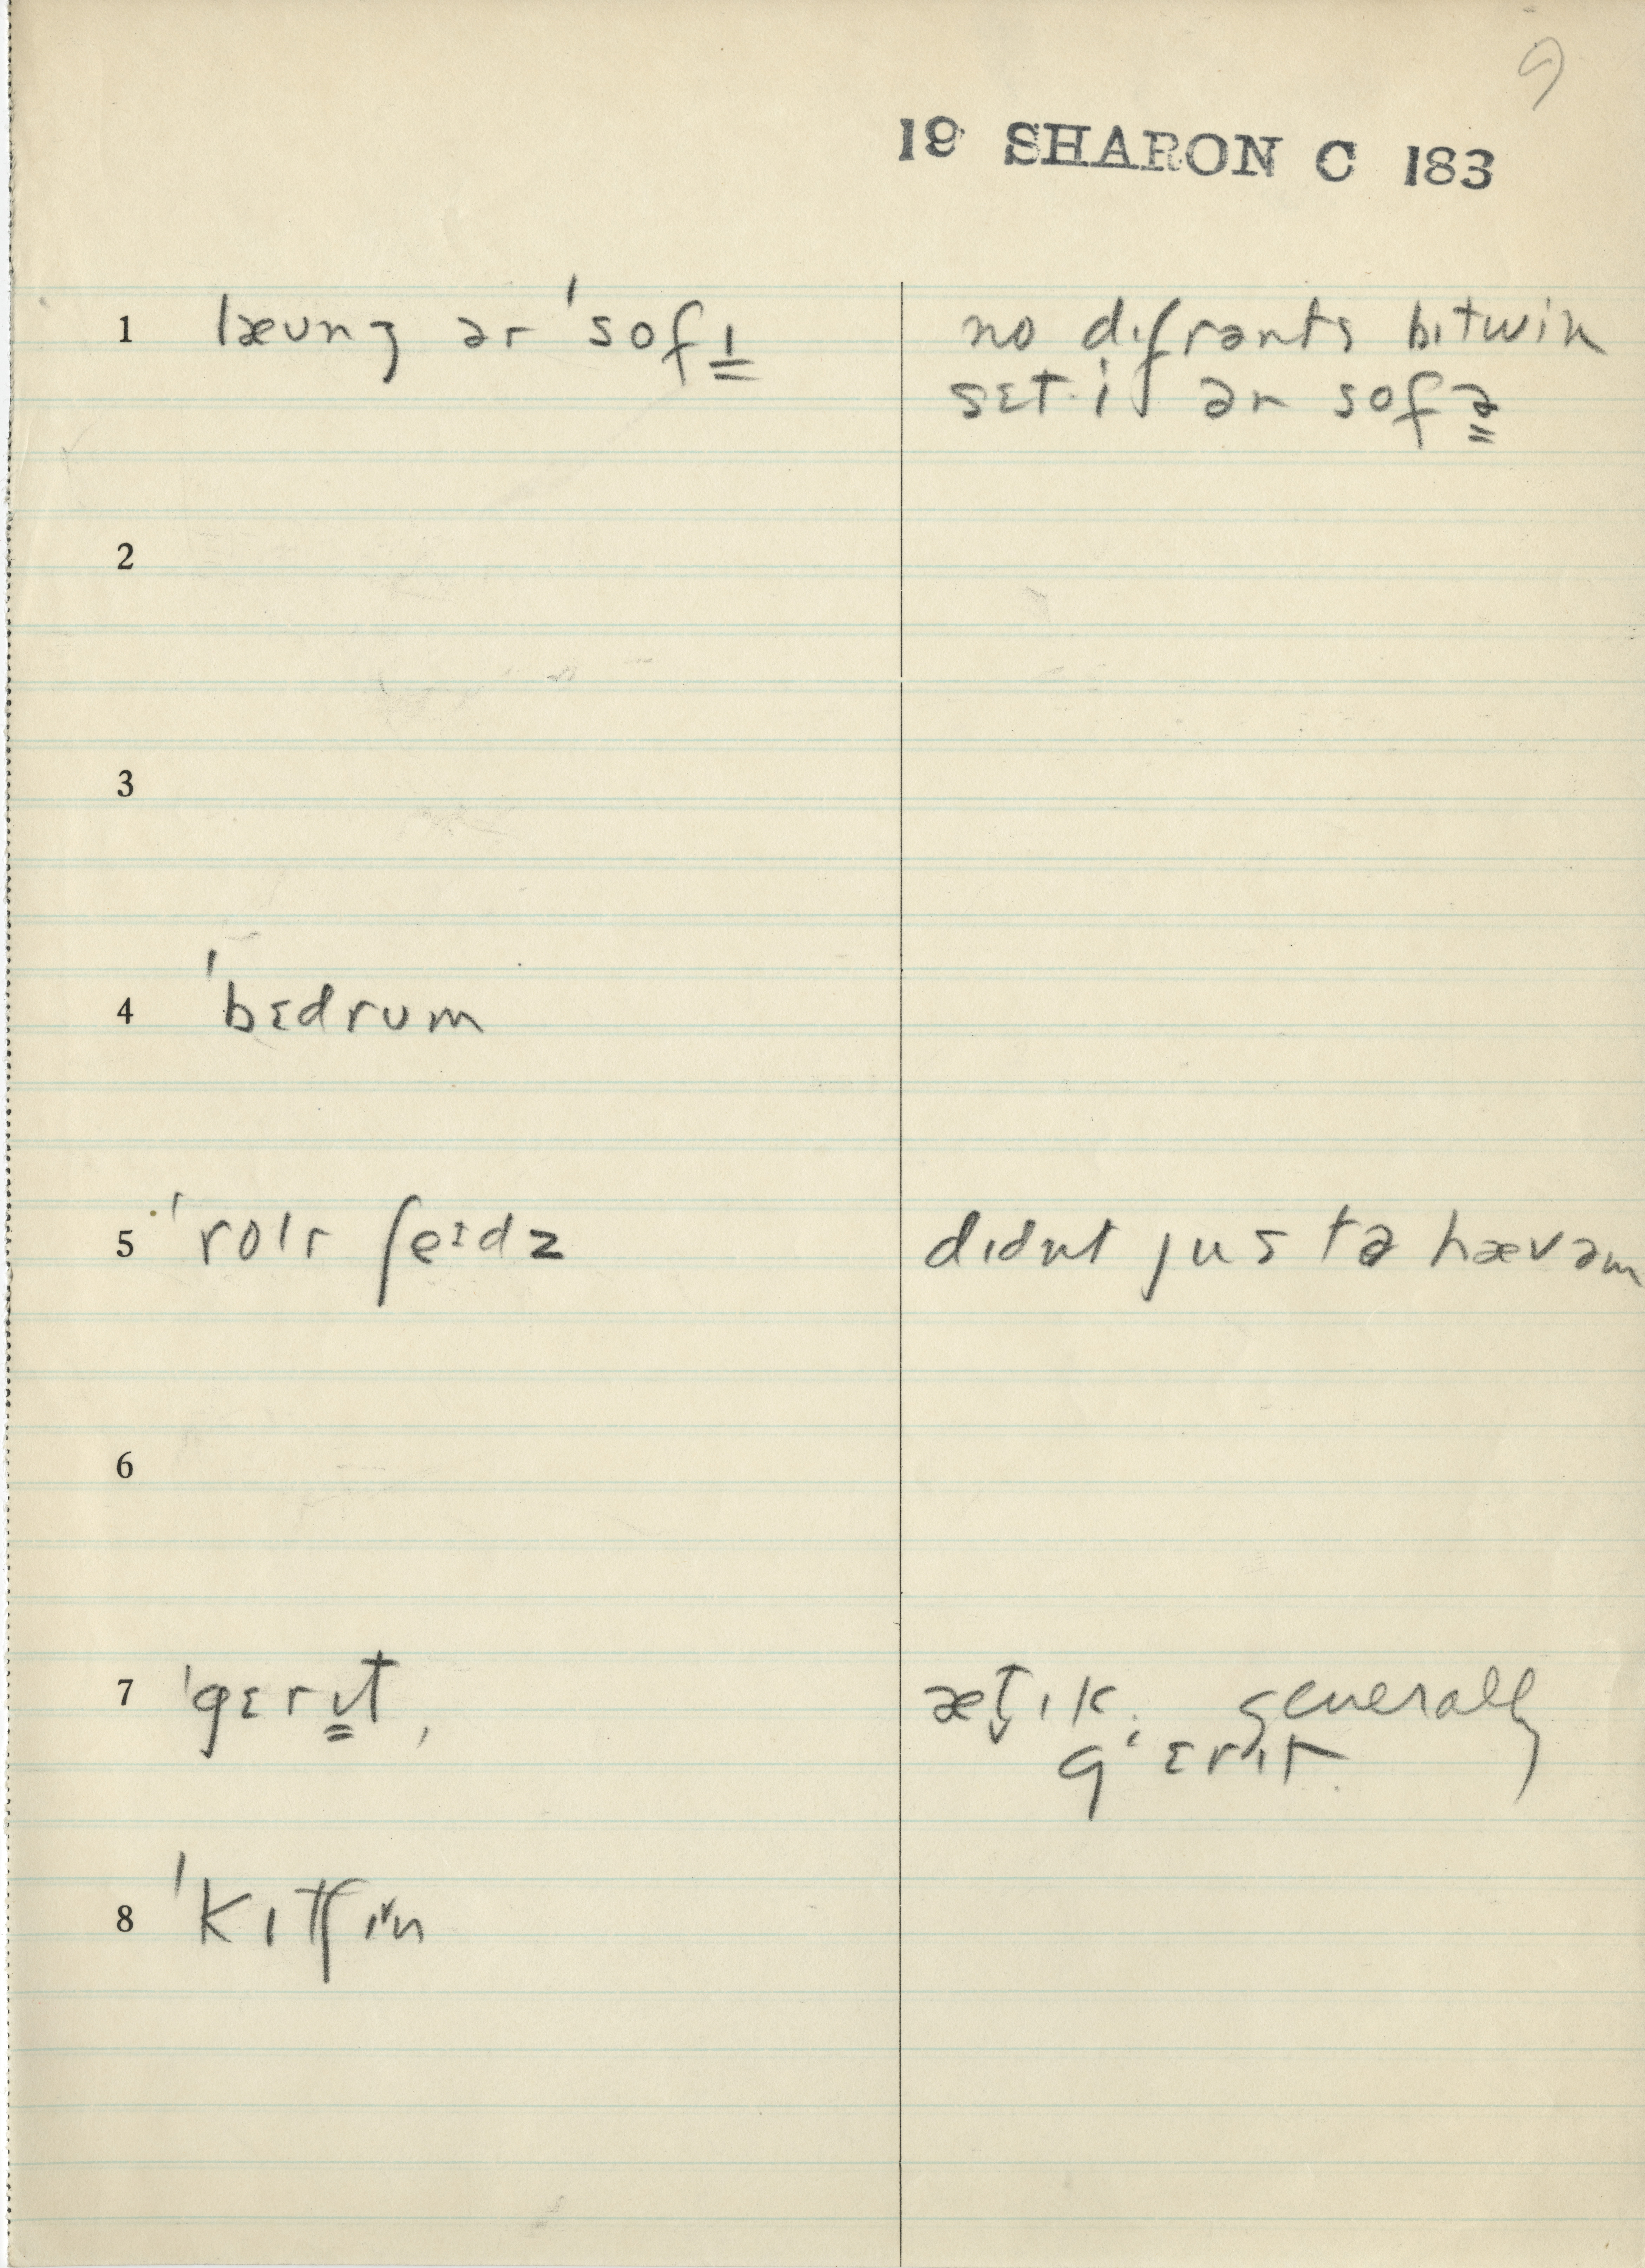 9
19 SHARON C 183
1 læʊnʒ ər ˈsofɪ̳ no dɪfrənts bɪtwin
sɛti ər sofə̳
2
3
4 ˈbɛdrʊm
5 ˈrolr ʃeɪdz dɪdnt jus tə hævəm
6
7 ˈgɛrʊ̳t, æt̬ɪk. generally
gˈɛrɪt.
8 ˈkɪtʃɪn